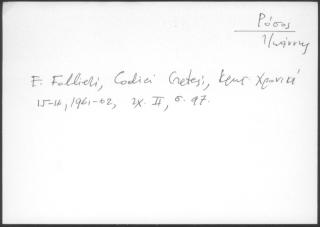 Ρόσος
Ἰωάννης
E. Follieri, Codici Cretesi, Κρητ. Χρονικά
15-16, 1961-62, τχ. II, σ. 97.